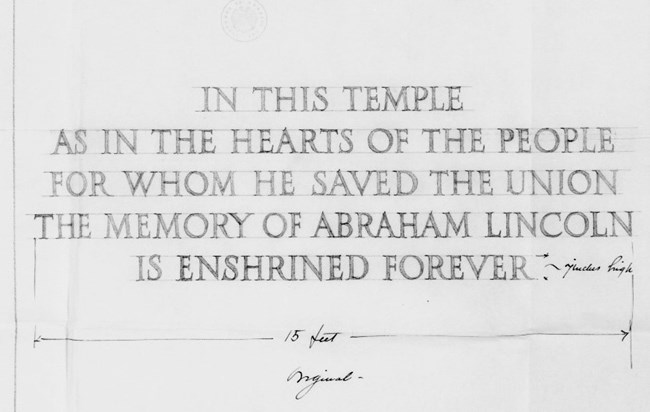 IN THIS TEMPLE
AS IN THE HEARTS OF THE PEOPLE
FOR WHOM HE SAVED THE UNION
THE MEMORY OF ABRAHAM LINCOLN
IS ENSHRINED FOREVER
inches high
15 feet
Original -